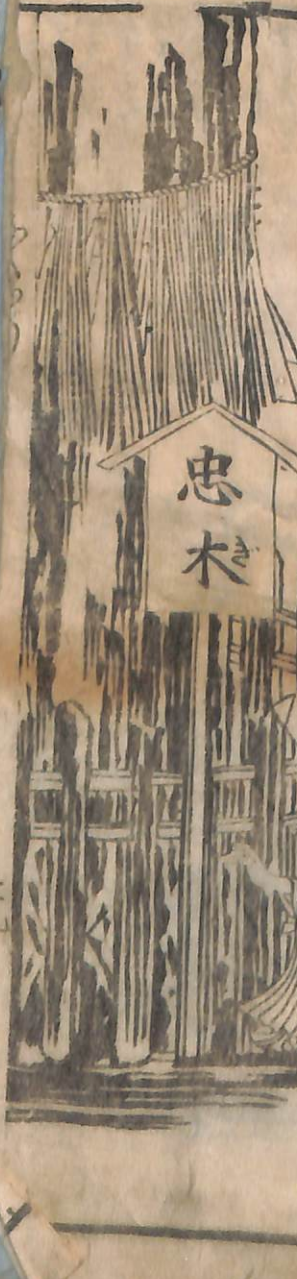 忠木ぎ